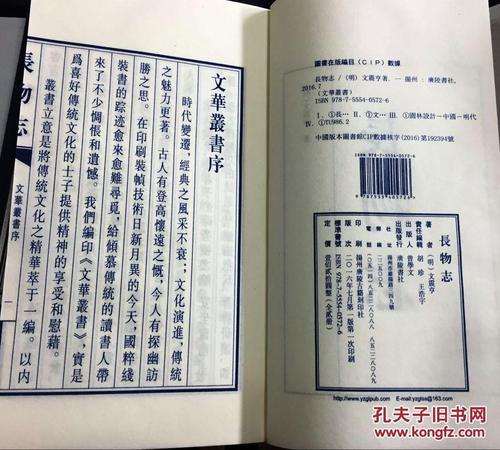 文華叢書序
時代變遷，經典之風采不衰；文化演進，傳統
之魅力更著。古人有登高懷遠之慨，今人有探幽訪
勝之思。在印刷裝幀技術日新月異的今天，國粹綫
裝書的踪迹愈來愈難尋覓，給傾慕傳統的讀書人帶
來了不少惆悵和遺憾。我們編印《文華叢書》，實是
爲喜好傳統文化的士子提供精神的享受和慰藉。
叢書立意是將傳統文化之精華萃于一編。以内
長物志
文華叢書序
一
圖書在版編目（CIP）數據
長物志／（明）文震亨著．－揚州：廣陵書社，
2016.7
（文華叢書）
ISBN 978-7-5554-0572-6
Ⅰ．①長… Ⅱ．①文… Ⅲ．①園林設計－中國－明代
Ⅳ．①TU986.2
中國版本圖書館CIP數據核字（2016）第192394號
ISBN 978-7-5554-0572-6
9787555405726
長物志
著者 （明）文震亨
責任編輯 胡珍 王浩宇
出版人 曾學文
出版發行 廣陵書社
社址 揚州市維揚路三四九號
郵編 二二五〇〇九
電話 （〇五一四）八五二二八〇八八 八五二二八〇八九
印刷 揚州廣陵古籍刻印社
版次 二〇一六年七月第一版第一次印刷
標準書號 ISBN 978-7-5554-0572-6
定價 壹佰貳拾圓整（全貳册）
http://www.yzglpub.com E-mail:yzglss@163.com
孔夫子旧书网
KONGFZ.COM